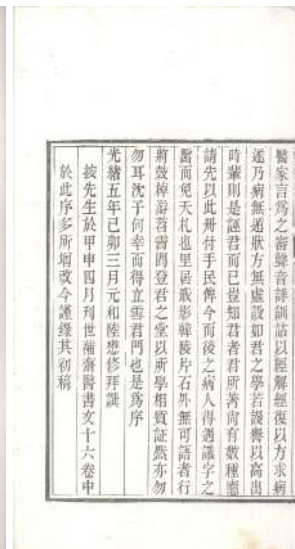 醫家言爲之審聲音詳訓詁以經解經復以方求病
遂乃病無遁狀方無虛設如君之學若謾譽以高出
時輩則是誣君而已豈知君者君所著尚有數種應
請先以此册付手民俾今而後之病人得遇識字之
醫而免夭札也里居戢影韓陵片石外無可語者行
將鼓棹游苕霅間登君之堂以所學相質証然亦勿
勿耳沈子何幸而得立雪君門也是爲序
光緒五年己卯三月元和陸懋修拜譔
按先生於甲申四月刊世補齋醫書文十六卷中
於此序多所增改今謹錄其初稿